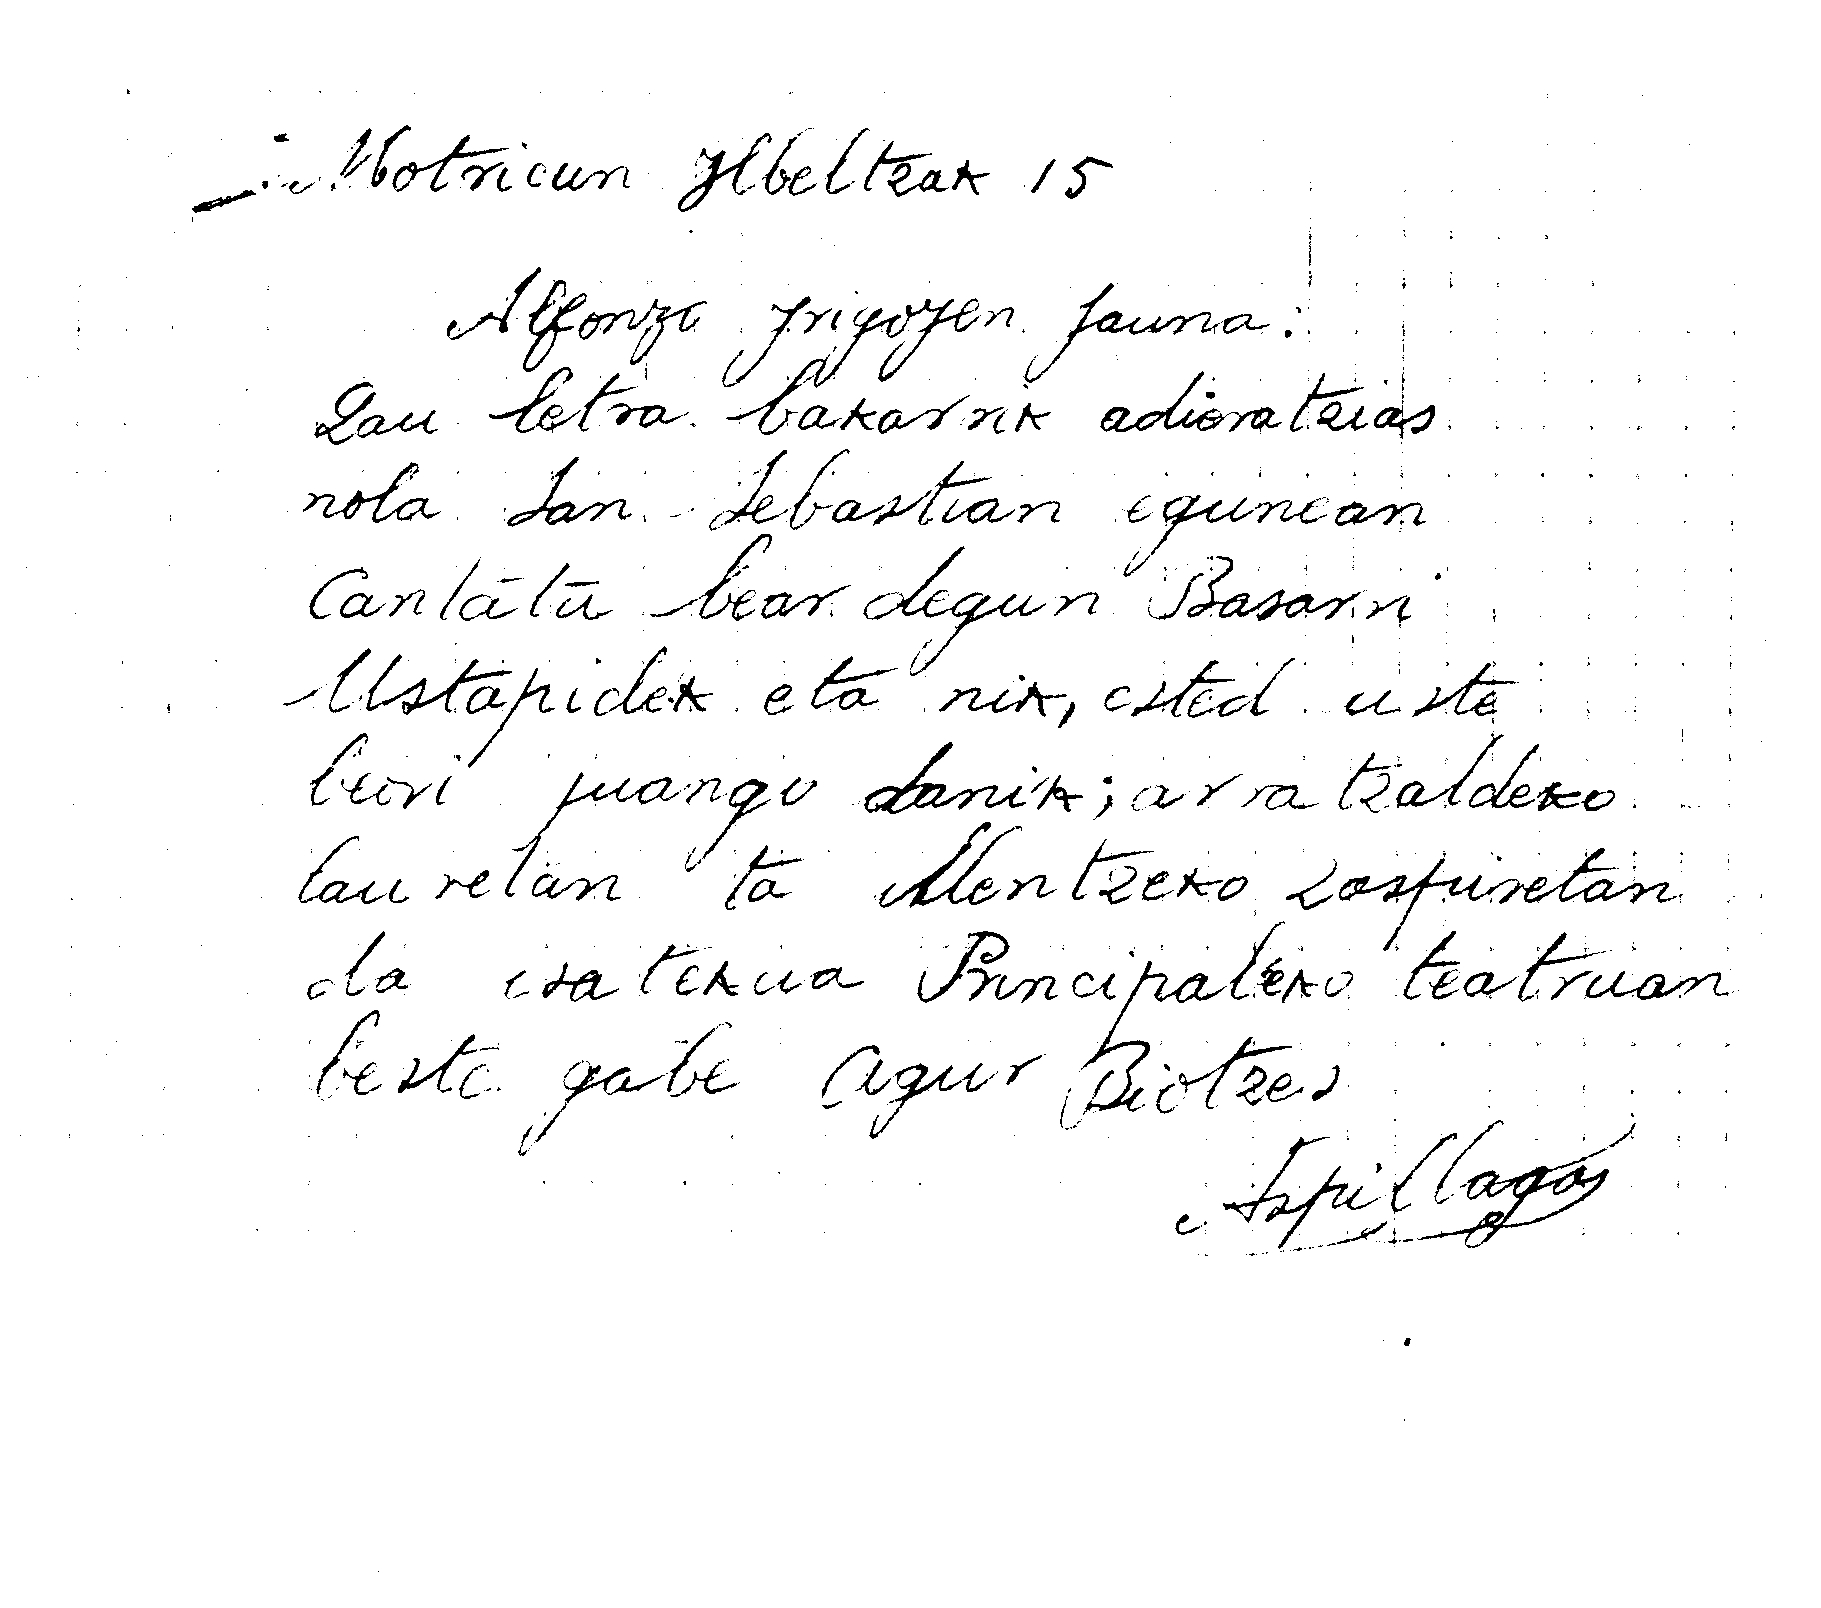 Motricun Ilbeltzak 15
Alfonzo Irigoyen Jauna:
Lau letra bakarrik adieratzias
nola San Sebastian egunean
Cantatu bear degun Basarri
Ustapidek eta nik, ested uste
beori juango danik; arratzaldeko
lauretan ta Illentzeko zaspiretan
da esatekua Principaleko teatruan
beste gabe Agur Biotzes
Aspillaga